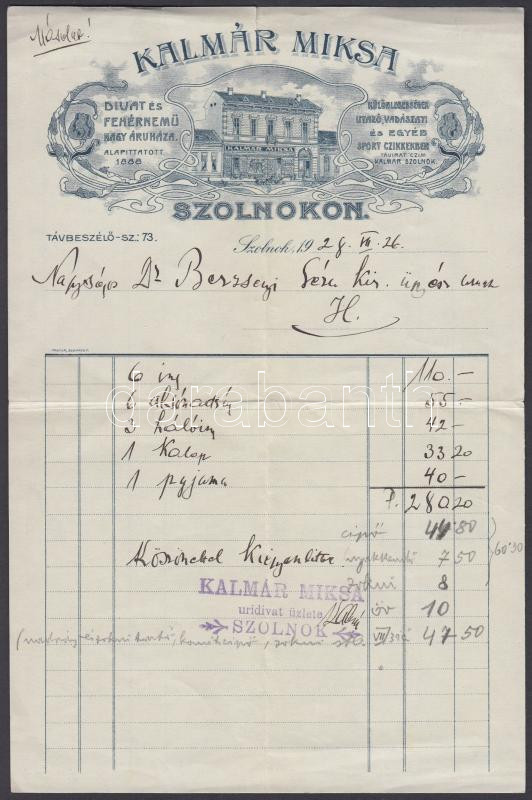 Másolat!
KALMÁR MIKSA
DIVAT ÉS
FEHÉRNEMŰ
NAGY ÁRUHÁZA.
ALAPITTATOTT
1888
KALMÁR MIKSA
KÜLÖNLEGESSÉGEK
UTAZÓ, VADÁSZATI
ÉS EGYÉB
SPORT CZIKKEKBEN
TÁVIRAT CZIM
KALMÁR SZOLNOK.
SZOLNOKON.
TÁVBESZÉLŐ-SZ.: 73.
Szolnok, 1928. VII. 26.
Nagyságos Dr Berzsenyi Géza Kir. ügyész
H.
6 ing 110.–
6 alsónadrág 55.–
3 hálóing 42–
1 Kalap 33 20
1 pyjama 40–
P. 280.20
cipő 44.80
Köszönettel Kiegyenlítve nyakkendő 7 50
60.30
zokni 8
KALMÁR MIKSA
uridivat üzlete
SZOLNOK
öv 10
47 50
darabanth